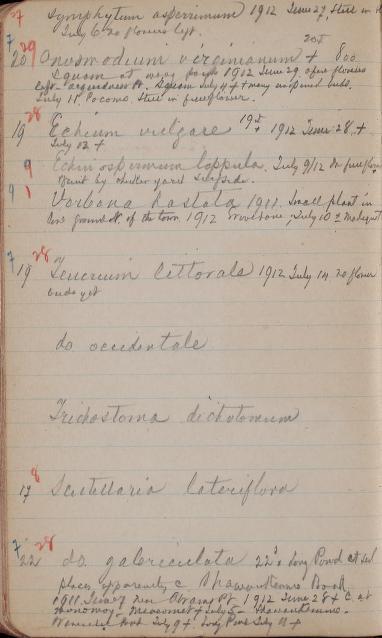 7 Symphytum asperrimum 1912 June 27, Still in
July 6 20 flowers left.
20±
7, 29
20 Onosmodium virginianum + 800
Squam at 1912 June 29 open flowers
left. Squam July 4 + many unopened buds.
July 11, Pocomo Still in free flower.
28
19 Echium vulgare 19± 1912 June 28, +
July 12 +
9 Echinospermum lappula July 9/12 In free flow
by yard
9 1 Verbena hastata 1911. Small plant in
of the town 1912 July 10
7 28
19 Teucrium littorale 1912 July 14 20 flower
buds yet
do occidentale
Trichostoma dichotomum
8
17 Scutellaria lateriflora
7 28
22 do galericulata 22± Long Pond at sev
places apparently c Shawaukemo
1911. June 27 near 1912 June 28 + C. at
Monomoy - Meacomet + July 5 - Shawaukemo.
July 9 + Long Pond July 11 +